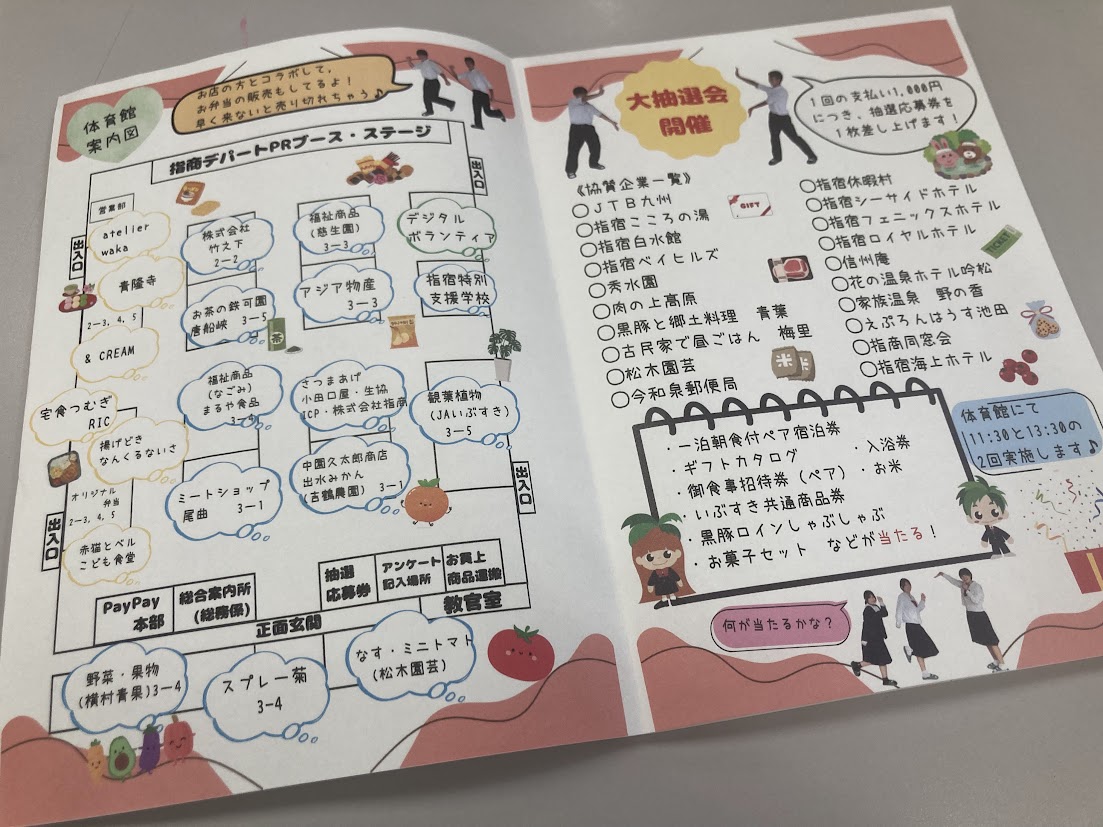 体育館
案内図
お店の方とコラボして、
お弁当の販売もしてるよ！
早く来ないと売り切れちゃう♪
指商デパートPRブース・ステージ
出入口
営業部
atelier
waka
出入口
貴隆寺
2−3、4、5
& CREAM
宅食つむぎ
RIC
揚げどき
なんくるないさ
オリジナル
弁当
2−3、4、5
出入口
赤猫とペル
こども食堂
株式会社
竹之下
2−2
お茶の鉄可園
唐船峡 3−5
茶
福祉商品
(なごみ)
まるや食品
3−3
ミートショップ
尾曲 3−1
福祉商品
(慈生園)
3−3
アジア物産
3−3
さつまあげ
小田口屋・生協
ICP・株式会社指商
中園久太郎商店
出水みかん
(吉鶴農園) 3−1
デジタル
ボランティア
指宿特別
支援学校
観葉植物
(JAいぶすき)
3−5
出入口
PayPay
本部
総合案内所
(総務係)
正面玄関
抽選
応募券
アンケート
記入場所
お買上
商品運搬
教官室
野菜・果物
(横村青果)3−4
スプレー菊
3−4
なす・ミニトマト
(松木園芸)
大抽選会
開催
1回の支払い1,000円
につき、抽選応募券を
1枚差し上げます！
《協賛企業一覧》
○JTB九州
○指宿こころの湯
○指宿白水館
○指宿ベイヒルズ
○秀水園
○肉の上髙原
○黒豚と郷土料理 青葉
○古民家で昼ごはん 梅里
○松木園芸
○今和泉郵便局
GIFT
米
○指宿休暇村
○指宿シーサイドホテル
○指宿フェニックスホテル
○指宿ロイヤルホテル
○信州庵
○花の温泉ホテル吟松
○家族温泉 野の香
○えぷろんはうす池田
○指商同窓会
○指宿海上ホテル
TICKET
・一泊朝食付ペア宿泊券
・ギフトカタログ ・入浴券
・御食事招待券（ペア）・お米
・いぶすき共通商品券
・黒豚ロインしゃぶしゃぶ
・お菓子セット などが当たる！
体育館にて
11:30と13:30の
2回実施します♪
何が当たるかな？